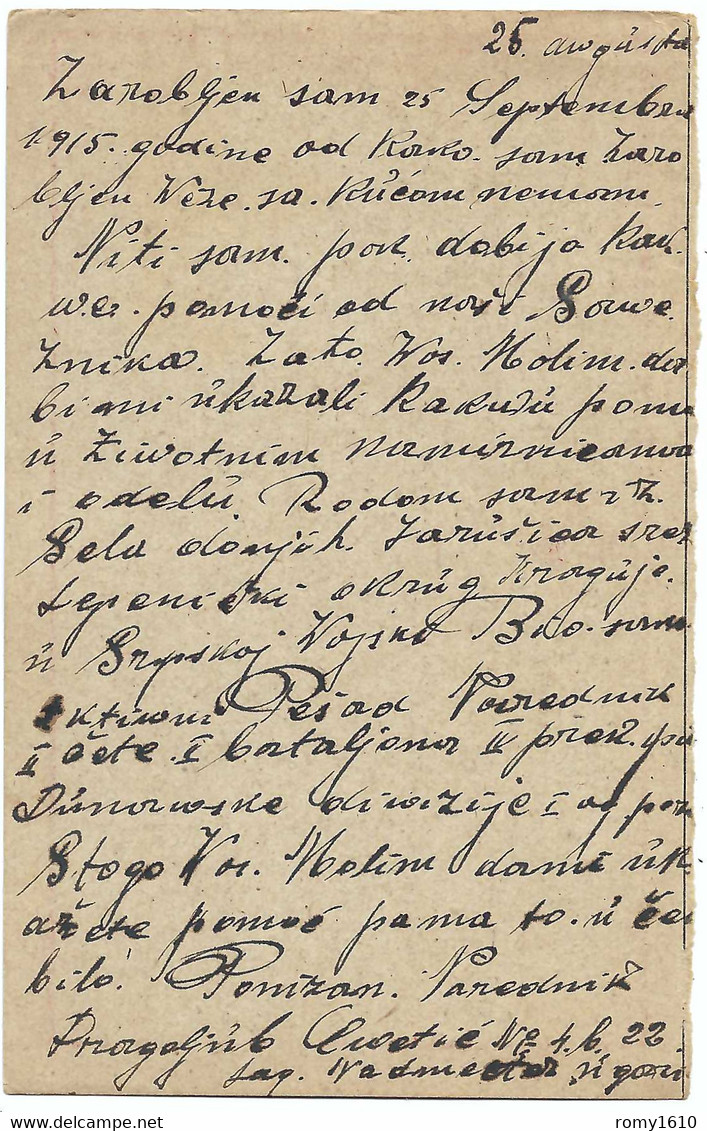 25. awgůsta
Zarobljen sam 25 Septembra
1915. godine od kako. sam Zaro
bljen Weze. sa. Kůćom nemam.
Niti sam. pak. dobijo kak
we. pomoći od naši Sawe.
znika. Zato. Was. Molim. da
bi mi ůkazali kakwů pomo
ů Žiwotnim namirnicama
i odelů. Rodom sam iz.
Sela donjih. Jarůšica srez
Lepenički okrůg Kragůje.
ů Srpskoj Wojske Bio. sam.
Aktiwni Pešad Narednik
I čete. I bataljona IV prek.
Důnawske diwizije I og. poz
Stogo Was. Molim dami ůk
ažete pomoć pama to. ů če
bilo. Ponizan. Narednik
Dragoljůb Cwetić No 4. b. 22
Lag. ů gari
romy1610